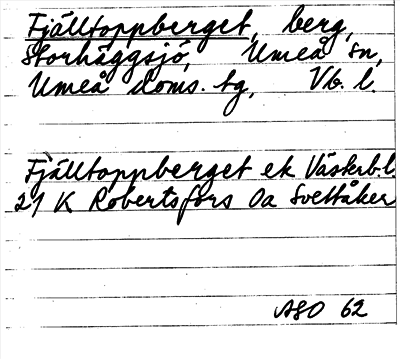 Fjälltoppberget, berg,
Storhäggsjö, Umeå sn,
Umeå doms. tg, Vb. l.
Fjälltoppberget ek Västerb.l.
21 K Robertsfors Oa Svettåker
ASO 62